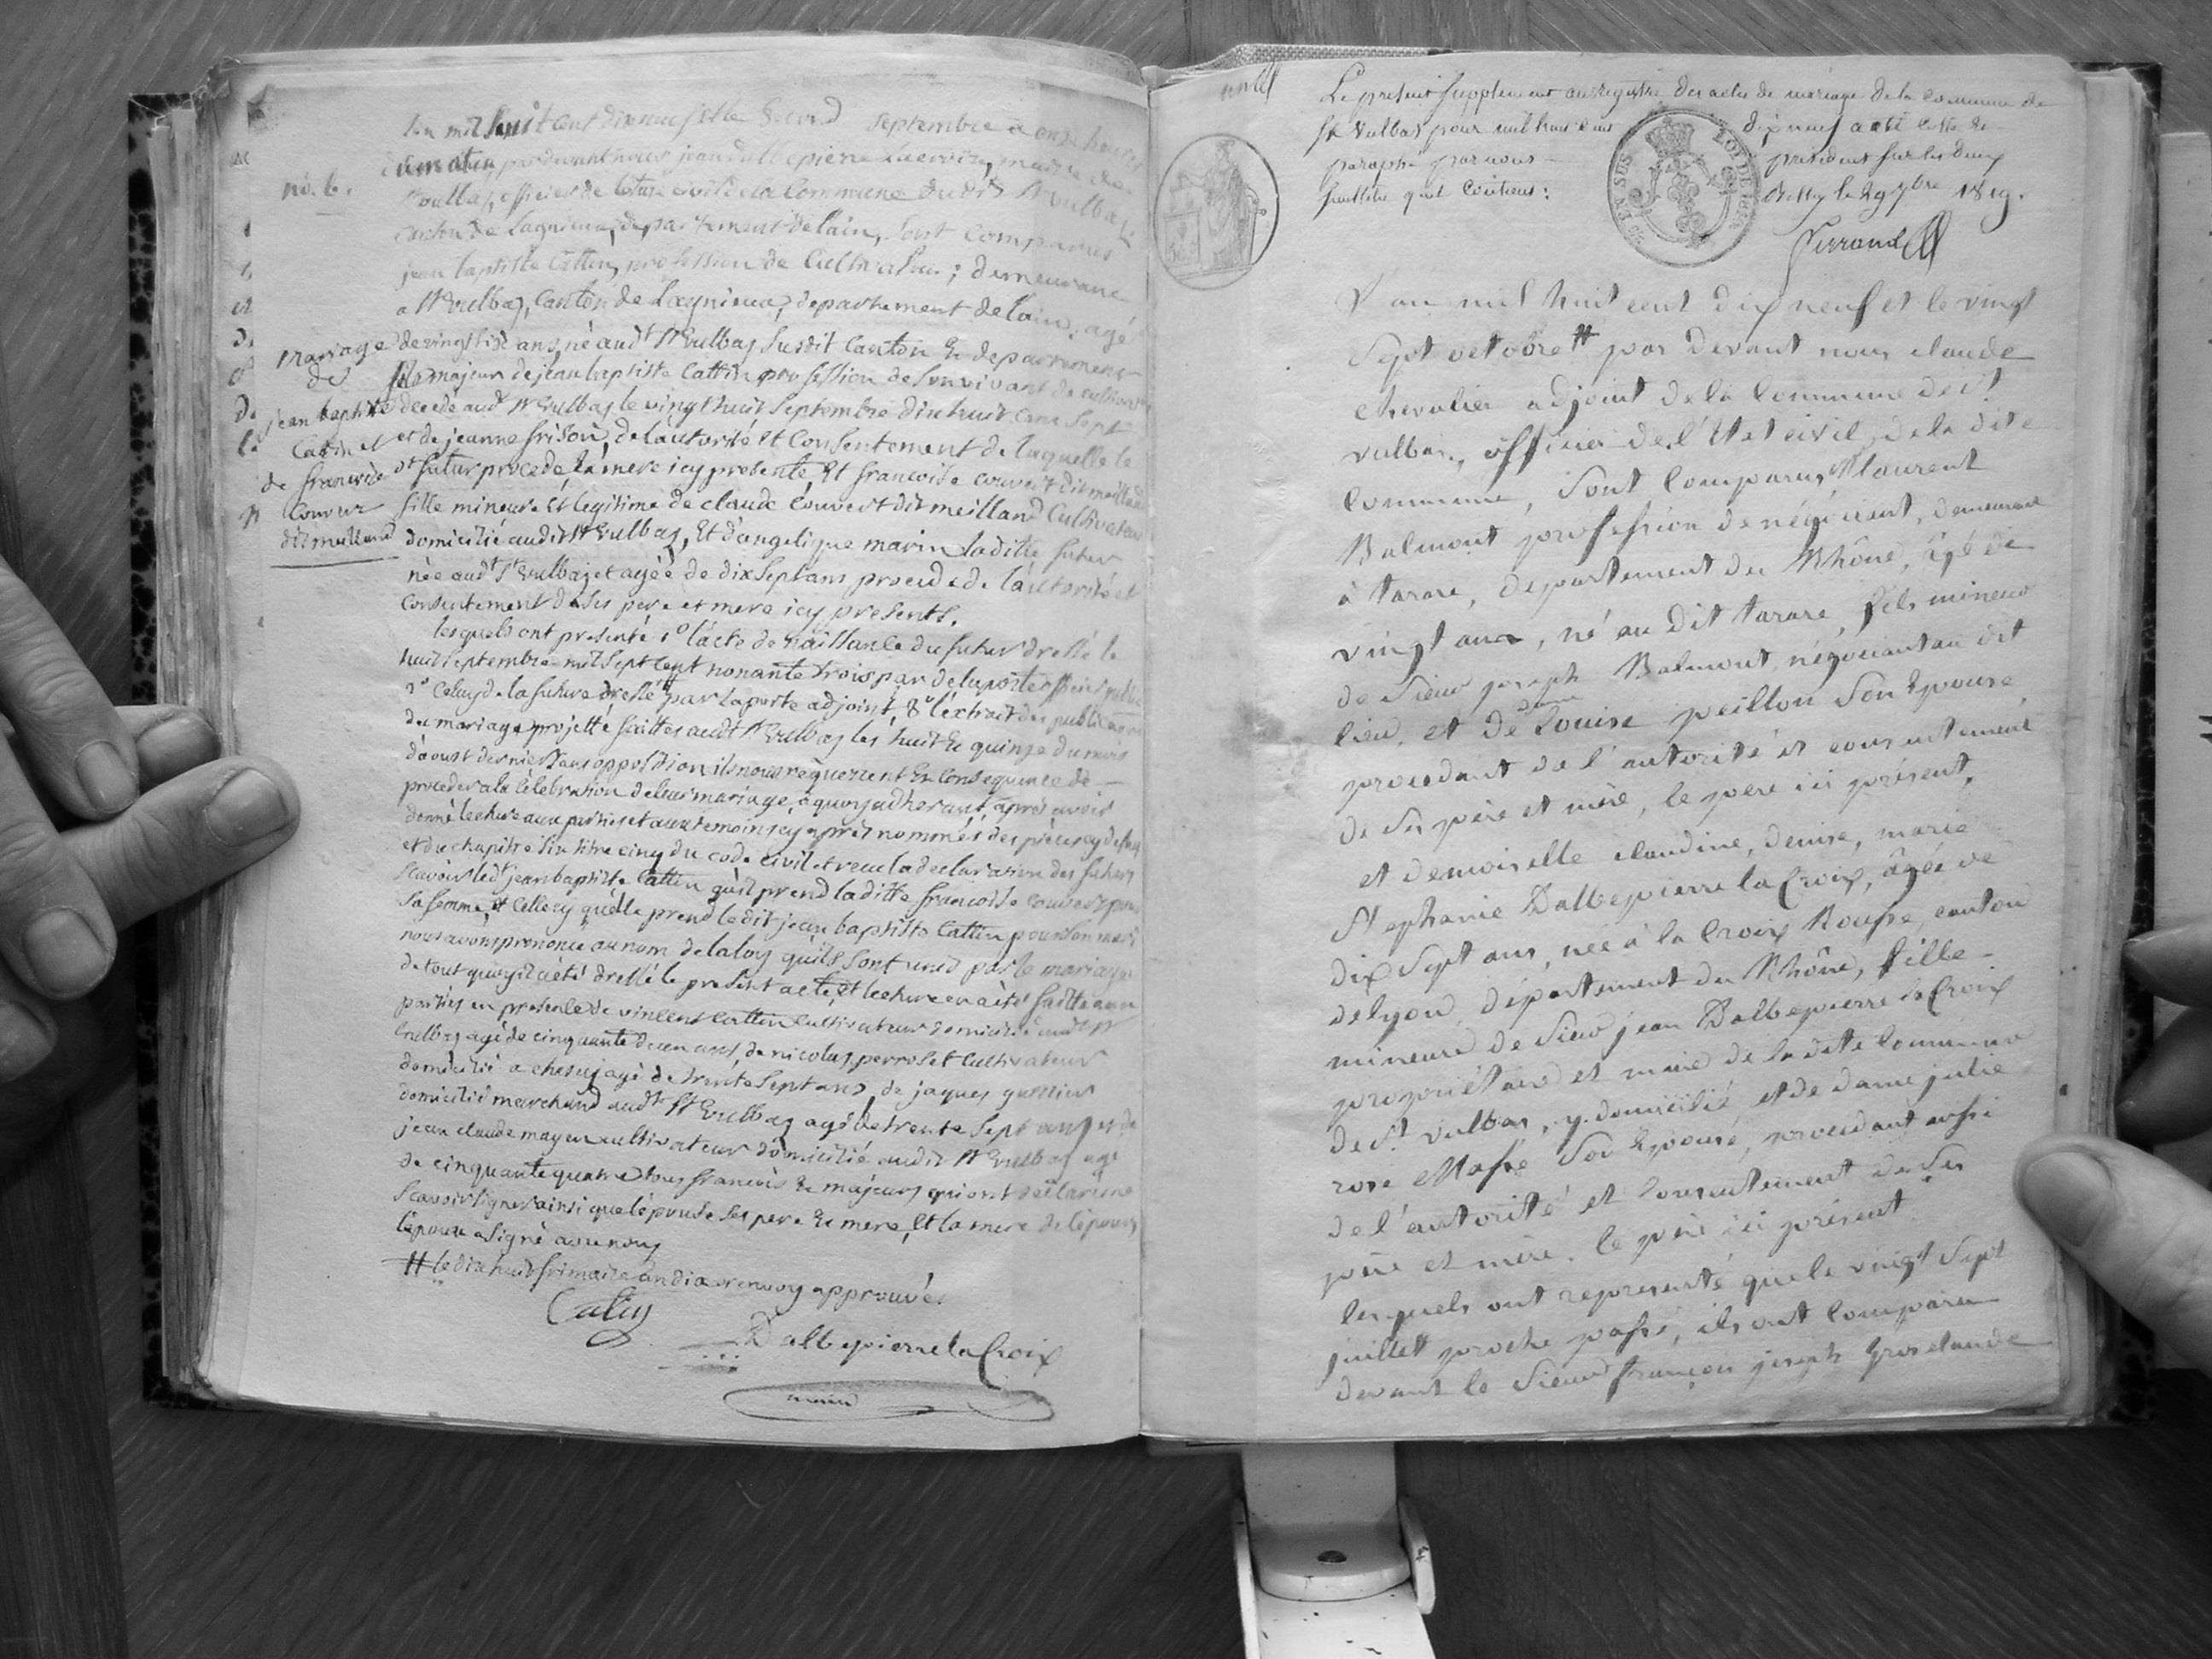 no. 6.
Mariage
de
jean baptiste
Catin et
de francoise
Couver
dit meilland
Lan mil huit cent dix neuf et le second septembre a onze heures
du matin, pardevant nous jean dalbepierre Lacroix, maire de
St vulbas, officier de letat civil de la Commune dudit St vulbas,
canton de Lagnieux, departement de lain, sont comparus
jean baptiste Cattin, profession de Cultivateur; demeurant
a St Vulbas, Canton de Lagnieux, departement de lain, agé
de vingt six ans, né audt St Vulbas susdit Canton & departement
fils majeur de jean baptiste Cattin profession de son vivant de cultivateur
decedé audt St Vulbas le vingt huit Septembre dix huit cent sept
et de jeanne frison, de lautorité et Consentement de laquelle le
dt futur procede, sa mere icy presente, Et francoise couvert dit meilland
fille mineure et legitime de claude Couvert dit meilland Cultivateur
domicilié audit St Vulbas, Et d'angelique marin laditte futur
née audt St Vulbas et agéé de dix Sept ans procede de l'autorité et
consentement de ses pere et mere icy presents.
lesquels ont presenté 1° l'acte de naissance du futur dressé le
huit septembre mil sept cent nonante trois par delaporte officier public
2° Celuy de la future dressé # par Laporte adjoint, 3° l'extrait des publications
du mariage projetté faittes audt St Vulbas les huit & quinze du mois
d'aoust dernier sans opposition ils nous requerent En Consequence de
proceder a la Célébration de leur mariage, a quoy adherant, après avoir
donné lecture aux parties et aux temoins cy après nommés des pièces cy dessus
et du chapitre six titre cinq du code civil et recu la declaration des futurs
scavoir ledt jean baptiste Cattin qu'il prend laditte francoise couvert pour
sa femme, et Celle cy qu'elle prend le dit jean baptiste Cattin pour son mari
nous avons prononcé au nom de la loy qu'ils sont unis par le mariage
de tout quoy il a été dressé le present acte, et lecture en a été faitte aux
parties en presence de vincent Cattin cultivateur domicilié audt St
Vulbas agé de cinquante deux ans, de nicolas perroset Cultivateur
domicilié a chasey agé de trente Sept ans, de jaques
domicilié marchand audt St Vulbas agé de trente Sept ans et de
jean claude mayeu cultivateur domicilié audit St Vulbas agé
de cinquante quatre tous francois & majeurs qui ont déclaré ne
scavoir signer ainsi que lépouse ses pere & mere, et la mere de l'époux
lépoux a signé avec nous
# le dix huit frimaire an dix renvoy approuvé.
Catin
Dalbepierre la Croix
maire
Le present supplement au registre des actes de mariage de la commune de
St Vulbas pour mil huit cent dix neuf a été cotté &
paraphé par nous président sur les deux
feuillets qu'il contient: Belley le 29 7bre 1819.
Ferrand
EN SUS
LOI DE 1816
L'an mil huit cent dix neuf et le vingt
sept octobre # par devant nous claude
chevalier adjoint de la Commune de St
vulbas, officier de l'Etat civil de la dite
Commune, sont Comparus Sr laurent
Balmont profession de négociant, demeurant
à tarare, département du Rhône, âgé de
vingt ans, né au dit tarare, fils mineur
de Sieur joseph Balmont, négociant au dit
lieu, et de dame Louise peillon son Epouse
procedant de l'autorité et consentement
de ses père et mère, le père ici présent,
et demoiselle claudine, denise, marie
Stephanie Dalbepierre la Croix, âgée de
dix Sept ans, née à la Croix Rousse, canton
de lyon, département du Rhône, fille
mineure de Sieur jean Dalbepierre la Croix
propriétaire et maire de la dite Commune
de St vulbas, y domicilié, et de dame julie
rose Masse son Epouse, procedant aussi
de l'autorité et Consentement de ses
père et mère. le père ici présent.
lesquels ont représenté que le vingt Sept
juillet proche passé, ils ont Comparu
devant le Sieur françois joseph Grosclaude